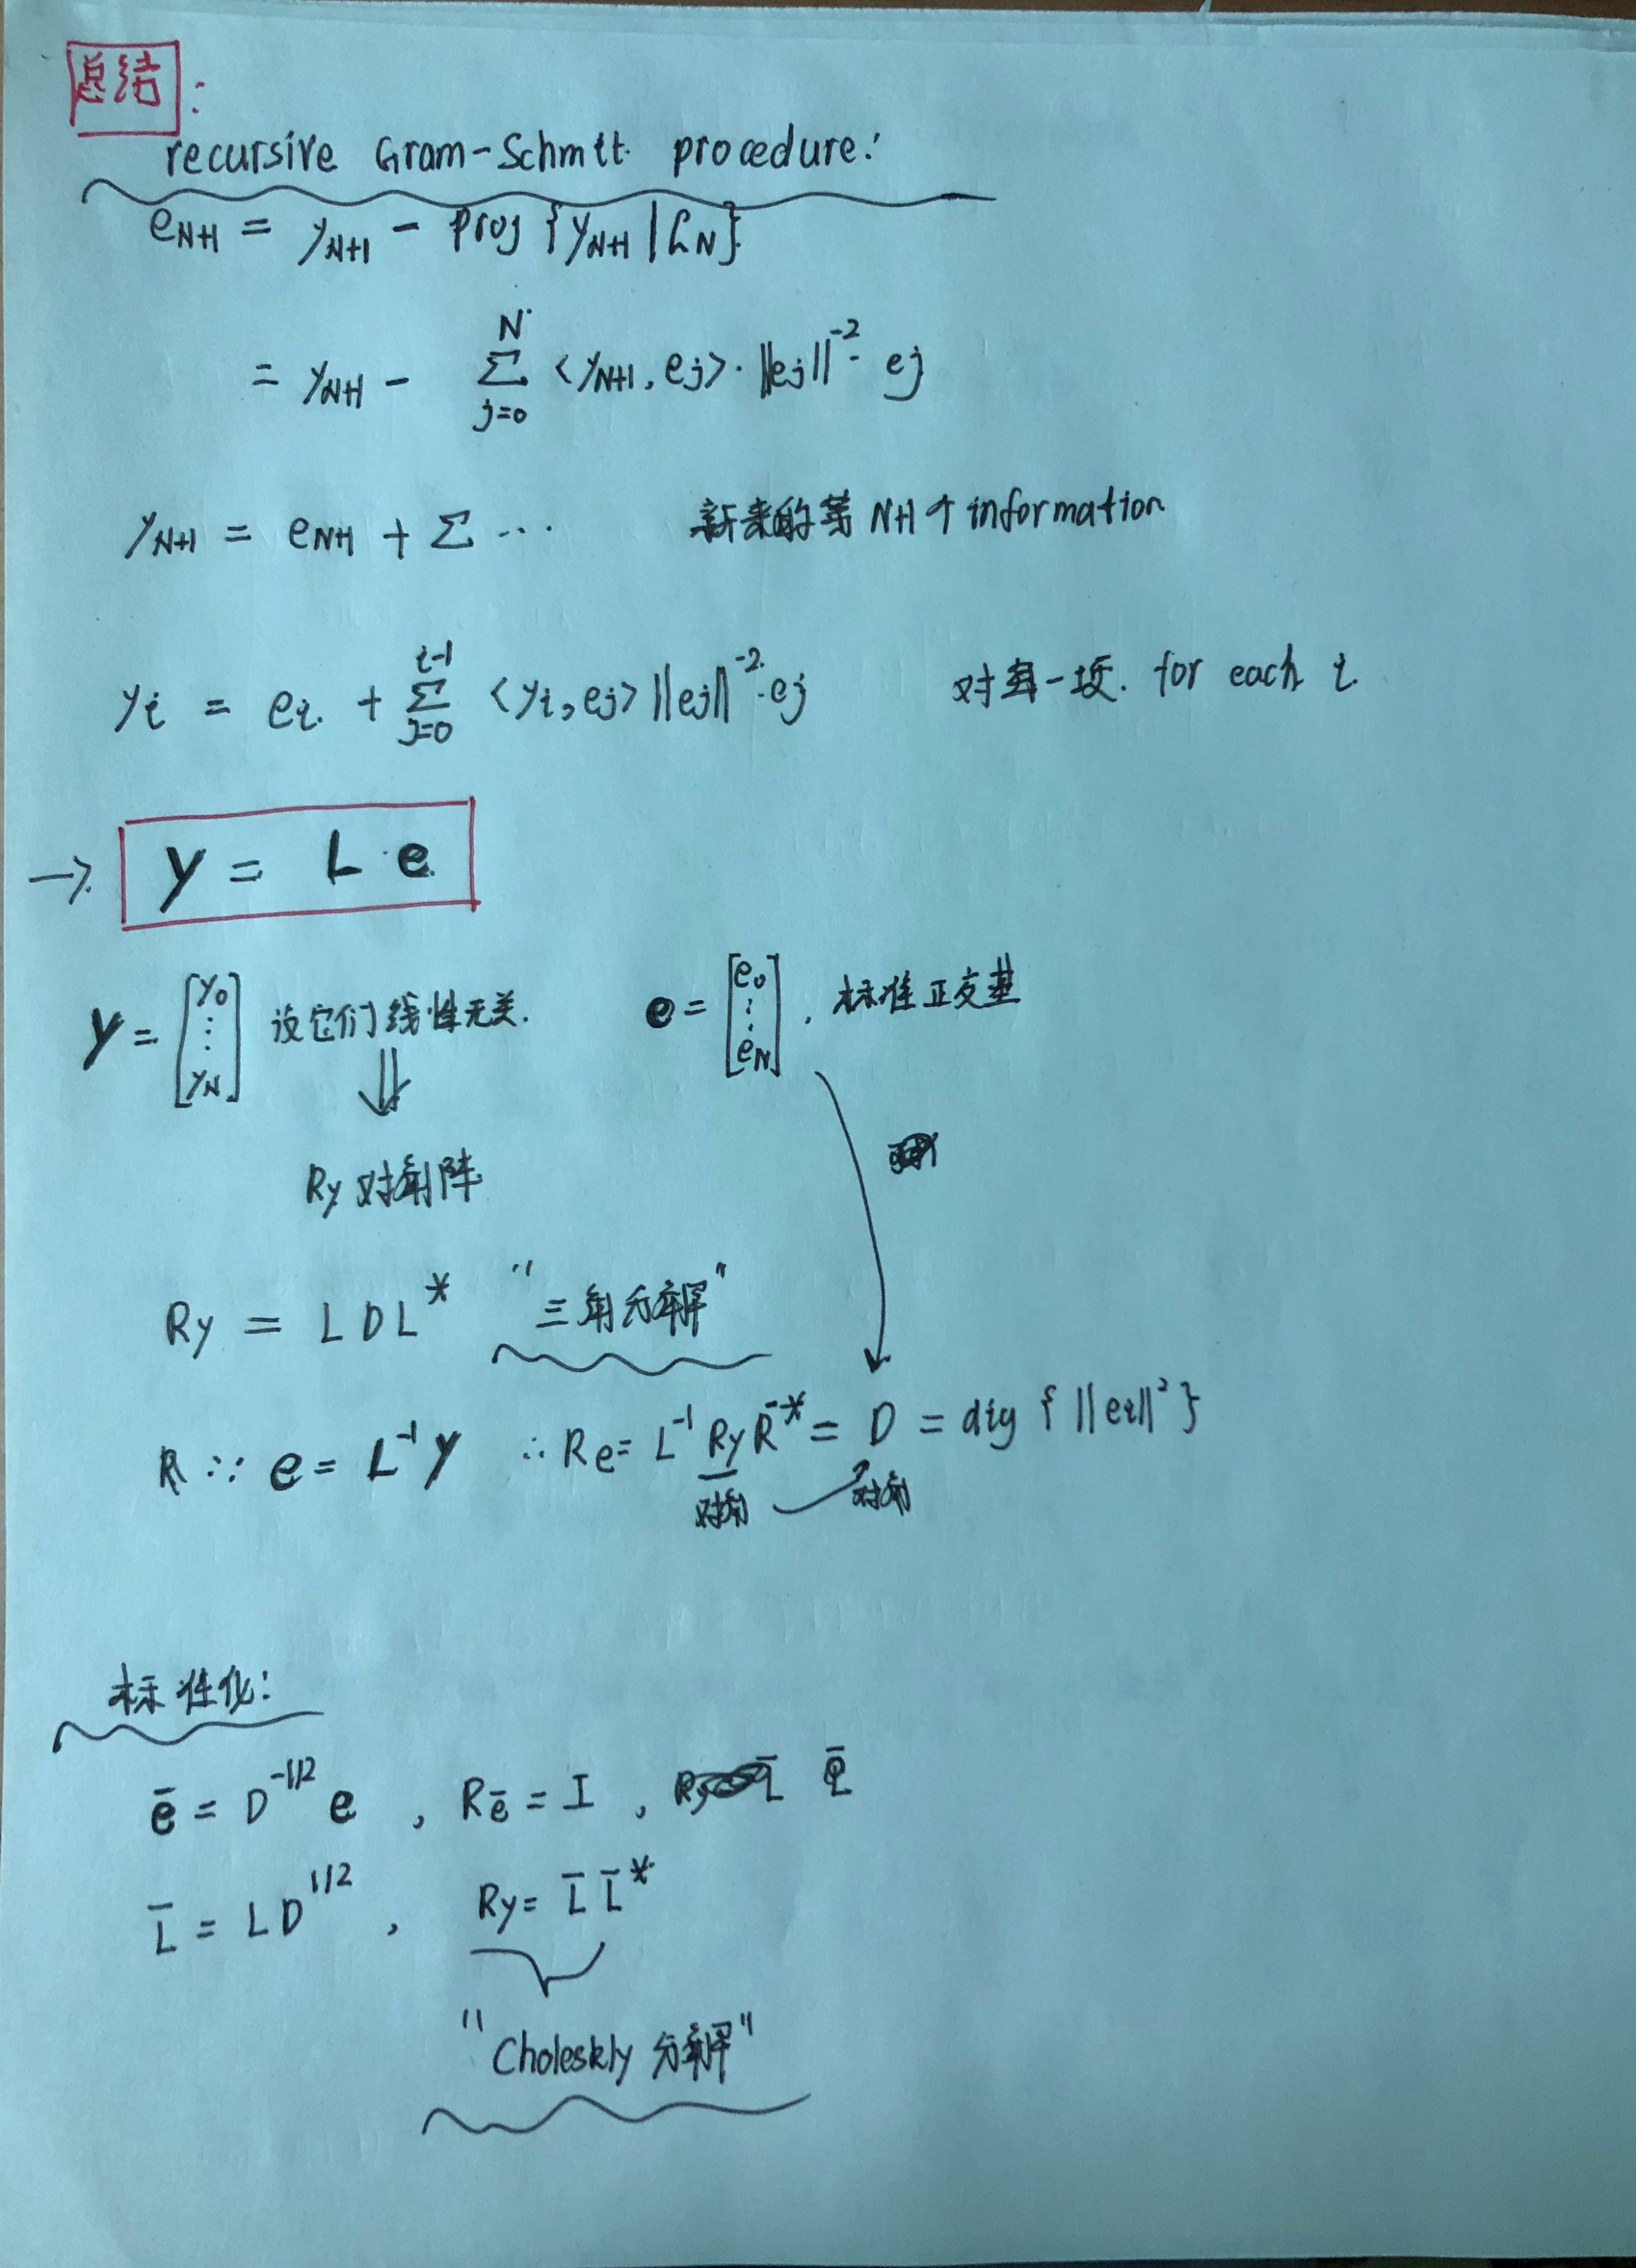 总结:
recursive Gram-Schmitt procedure:
e_{N+1} = y_{N+1} - Proj {y_{N+1} | L_N}
= y_{N+1} - \sum_{j=0}^{N} <y_{N+1}, e_j> · ||e_j||^{-2} · e_j
y_{N+1} = e_{N+1} + Σ ... 新来的第 N+1 个 information
y_i = e_i + \sum_{j=0}^{i-1} <y_i, e_j> ||e_j||^{-2} · e_j 对每一项. for each i.
→ y = L · e
y = [y_0 ⋮ y_N] 设它们线性无关. e = [e_0 ⋮ e_N], 标准正交基
⇓
R_y 对角阵
R_y = L D L^* "三角分解"
R ∵ e = L^{-1} y ∴ R_e = L^{-1} R_y R^{-*} = D = dig { ||e_i||^2 }
对角 对角
标准化:
\bar{e} = D^{-1/2} e , R_{\bar{e}} = I ,
\bar{L} = L D^{1/2} , R_y = \bar{L} \bar{L}^*
"Choleskly 分解"